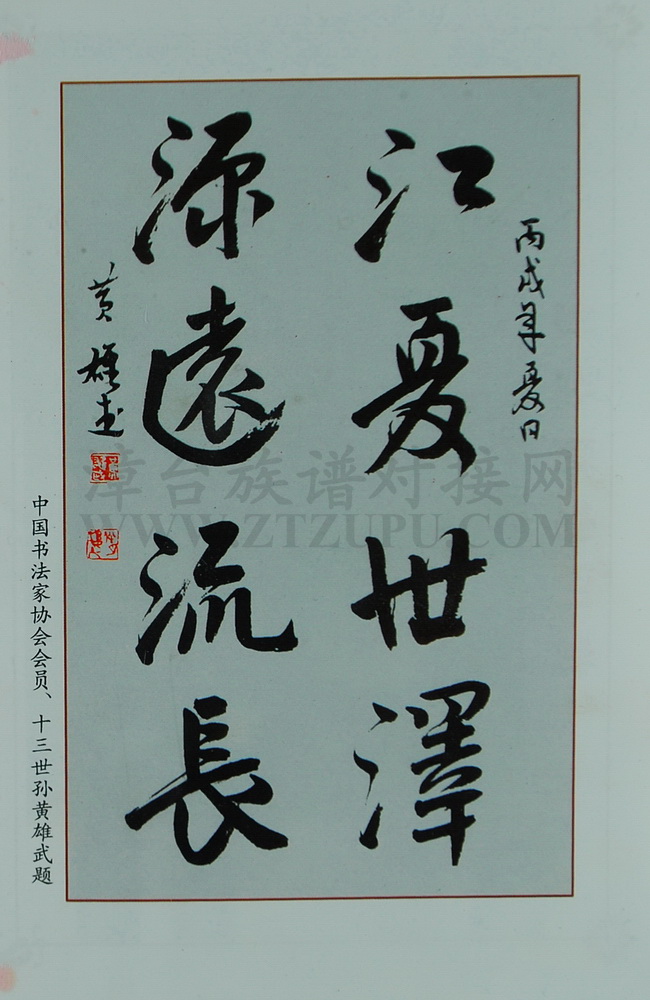 丙戌年夏日
江夏世澤
源遠流長
黄雄武
中国书法家协会会员、十三世孙黄雄武题
漳台族谱对接网
WWW.ZTZUPU.COM